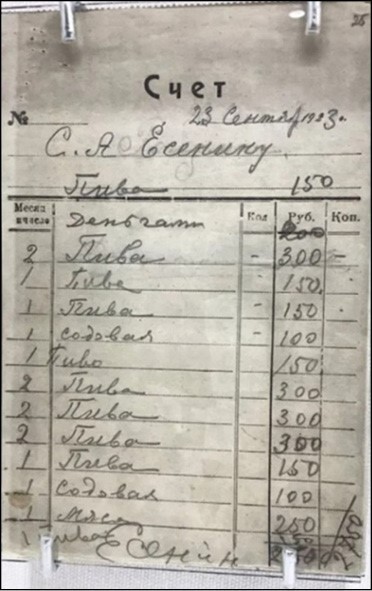 25
Счет
№ 23 Сентяб 1923 г.
С. А Есенину
Пива 150
Месяц и число Деньгами Кол Руб. Коп.
200
2 Пива - 300 -
1 Пива - 150
1 Пива - 150
1 содовая - 100
1 Пиво 150
2 Пива 300
2 Пива 300
2 Пива 300
1 Пива 150
1 содовая 100
1 Мясо 250
1 Пива 150
Есенин